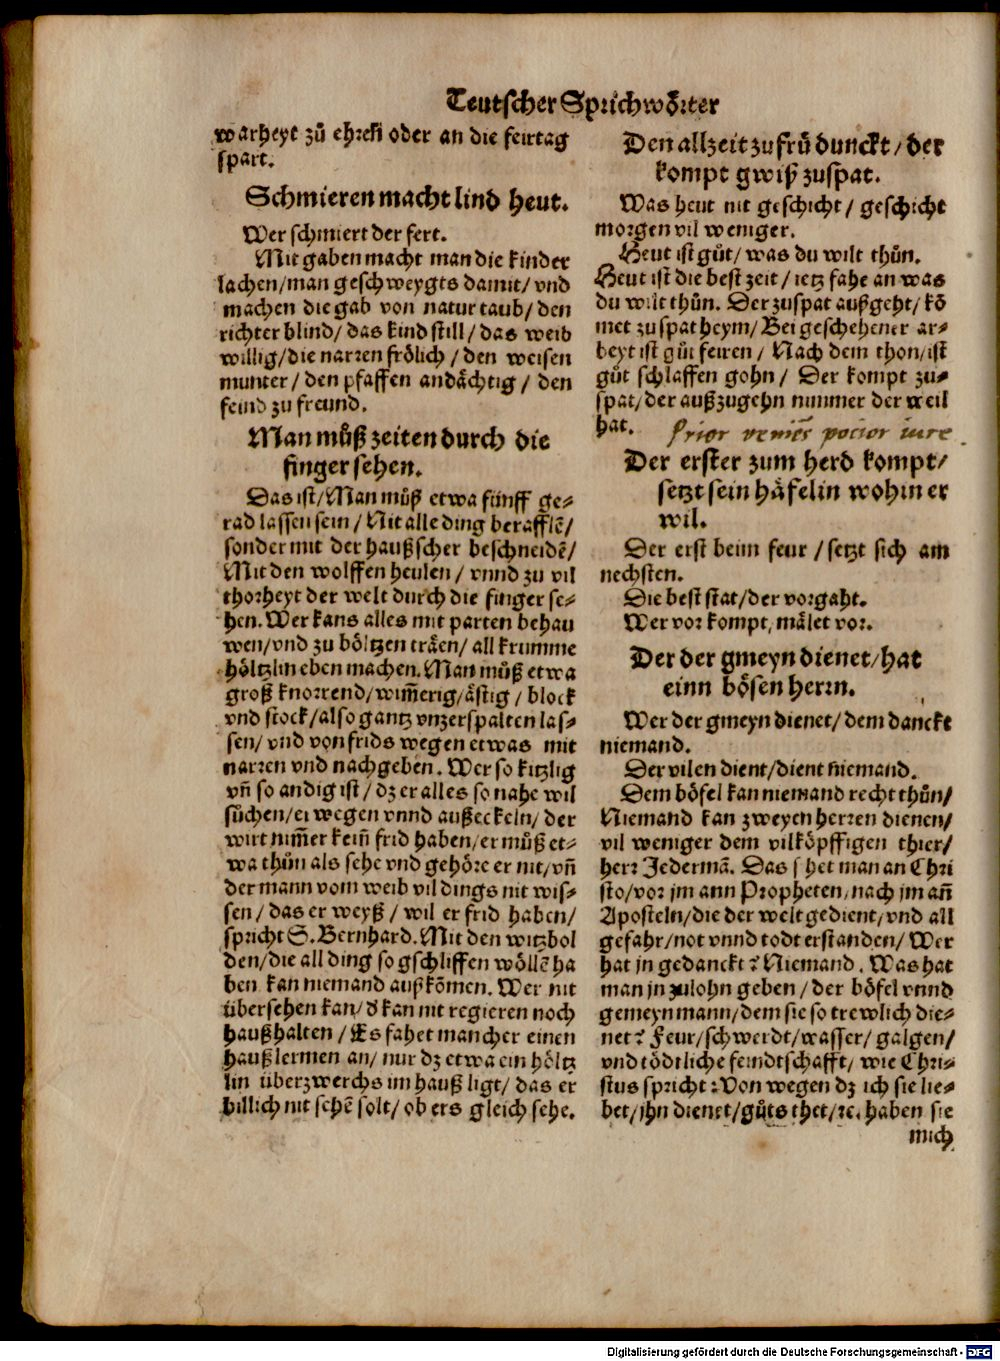 Teutscher Sprichwörter
warheyt zů ehren oder an die feirtag
spart.
Schmieren macht lind heut.
Wer schmiert der fert.
Mit gaben macht man die kinder
lachen/man geschweygts damit/vnd
machen die gab von natur taub/den
richter blind/das kind still/das weib
willig/die narren frölich/den weisen
munter/den pfaffen andächtig/den
feind zu freund.
Man můß zeiten durch die
finger sehen.
Das ist/Man můß etwa fünff ge-
rad lassen sein/Nit alle ding berafflē/
sonder mit der haußscher beschneidē/
Mit den wolffen heulen/vnnd zu vil
thorheyt der welt durch die finger se-
hen. Wer kans alles mit parten behau
wen/vnd zu böltzen träen/all krumme
höltzlin eben machen. Man můß etwa
groß knorrend/wim̃erig/ästig/block
vnd stock/also gantz vnzerspalten las-
sen/vnd von frids wegen etwas mit
narren vnd nachgeben. Wer so kitzlig
vñ so andig ist/dz er alles so nahe wil
sůchen/erwegen vnnd außeckeln/der
wirt nim̃er keiñ frid haben/er můß et-
wa thůn als sehe vnd gehöre er nit/vñ
der mann vom weib vil dings nit wis-
sen/das er weyß/wil er frid haben/
spricht S. Bernhard. Mit den witzbol
den/die all ding so gschliffen wöllē ha
ben kan niemand außkōmen. Wer nit
übersehen kan/d̕ kan nit regieren noch
haußhalten/Es fahet mancher einen
haußlermen an/nur dz etwa ein höltz
lin überzwerchs im hauß ligt/das er
billich nit sehē solt/ob ers gleich sehe.
Den allzeit zu frů dunckt/der
kompt gwiß zuspat.
Was heut nit geschicht/geschicht
morgen vil weniger.
Heut ist gůt/was du wilt thůn.
Heut ist die best zeit/ietz fahe an was
du wilt thůn. Der zuspat außgeht/kō
met zu spat heym/Bei geschehener ar-
beyt ist gůt feiren/Nach dem thon/ist
gůt schlaffen gohn/Der kompt zu-
spat/der außzugehn nimmer der weil
hat.
prior veniēs potior iure
Der erster zum herd kompt/
setzt sein häfelin wohin er
wil.
Der erst beim feur/setzt sich am
nechsten.
Die best stat/der vorgaht.
Wer vor kompt, mälet vor.
Der der gmeyn dienet/hat
einn bösen herrn.
Wer der gmeyn dienet/dem danckt
niemand.
Der vilen dient/dient niemand.
Dem böfel kan niemand recht thůn/
Niemand kan zweyen herren dienen/
vil weniger dem vilköpffigen thier/
herr Jedermā. Das s het man an Chri
sto/vor jm ann Propheten, nach jm añ
Aposteln/die der welt gedient/vnd all
gefahr/not vnnd todt erstanden/Wer
hat jn gedanckt? Niemand. Was hat
man jn zulohn geben/der böfel vnnd
gemeyn mann/dem sie so trewlich die-
net? Feur/schwerdt/wasser/galgen/
vnd tödtliche feindtschafft/wie Chri-
stus spricht: Von wegen dz ich sie lie-
bet/jhn dienet/gůts thet/ꝛc. haben sie
mich
Digitalisierung gefördert durch die Deutsche Forschungsgemeinschaft - DFG